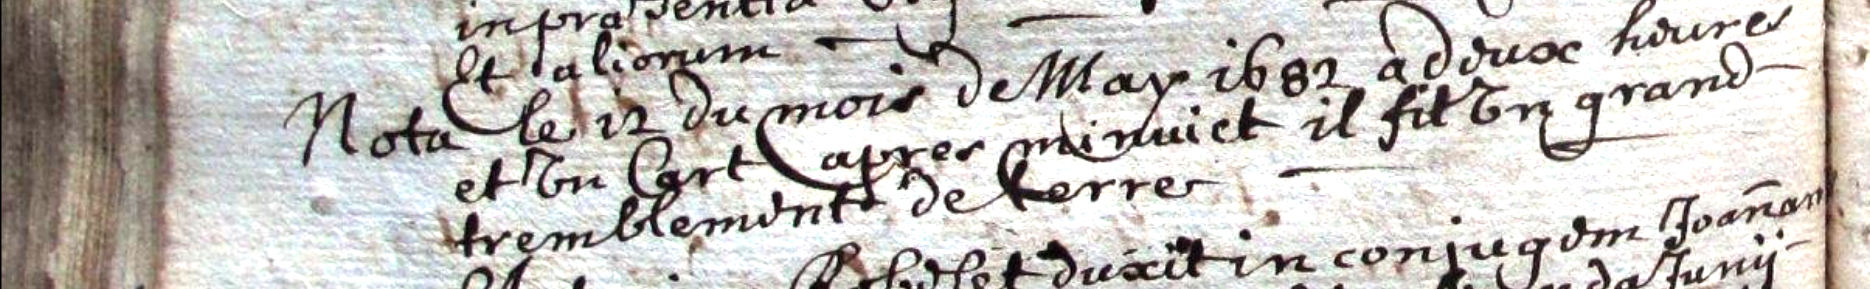 in praesentia
Et aliorum
Nota le 12 du mois de May 1682 a deux heures
et un Cart apres minuict il fit un grand
tremblement de terre
duxit in conjugem Joañam
Junij